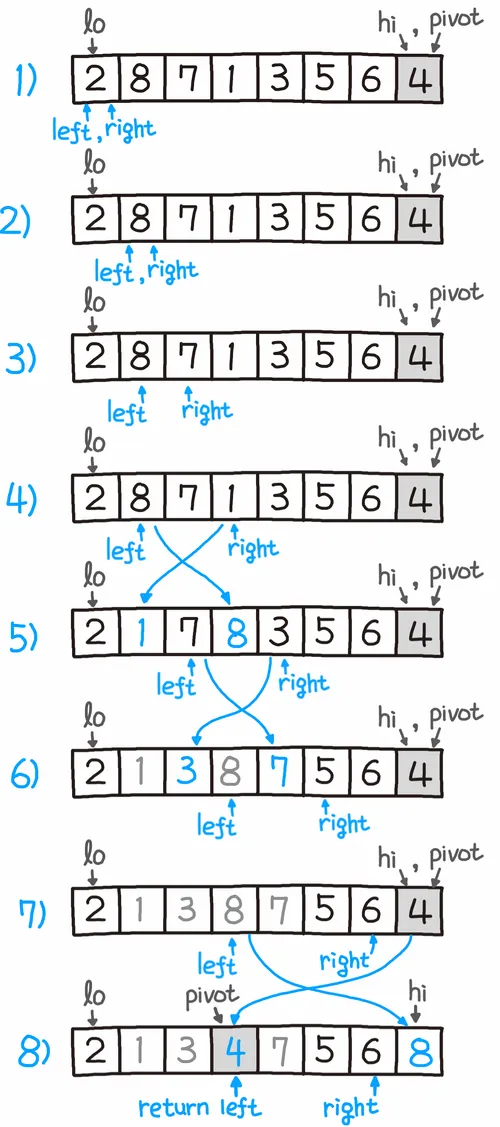 lo hi , pivot
1) 2 8 7 1 3 5 6 4
left , right
lo hi , pivot
2) 2 8 7 1 3 5 6 4
left , right
lo hi , pivot
3) 2 8 7 1 3 5 6 4
left right
lo hi , pivot
4) 2 8 7 1 3 5 6 4
left right
lo hi , pivot
5) 2 1 7 8 3 5 6 4
left right
lo hi , pivot
6) 2 1 3 8 7 5 6 4
left right
lo hi , pivot
7) 2 1 3 8 7 5 6 4
left right
lo pivot hi
8) 2 1 3 4 7 5 6 8
return left right